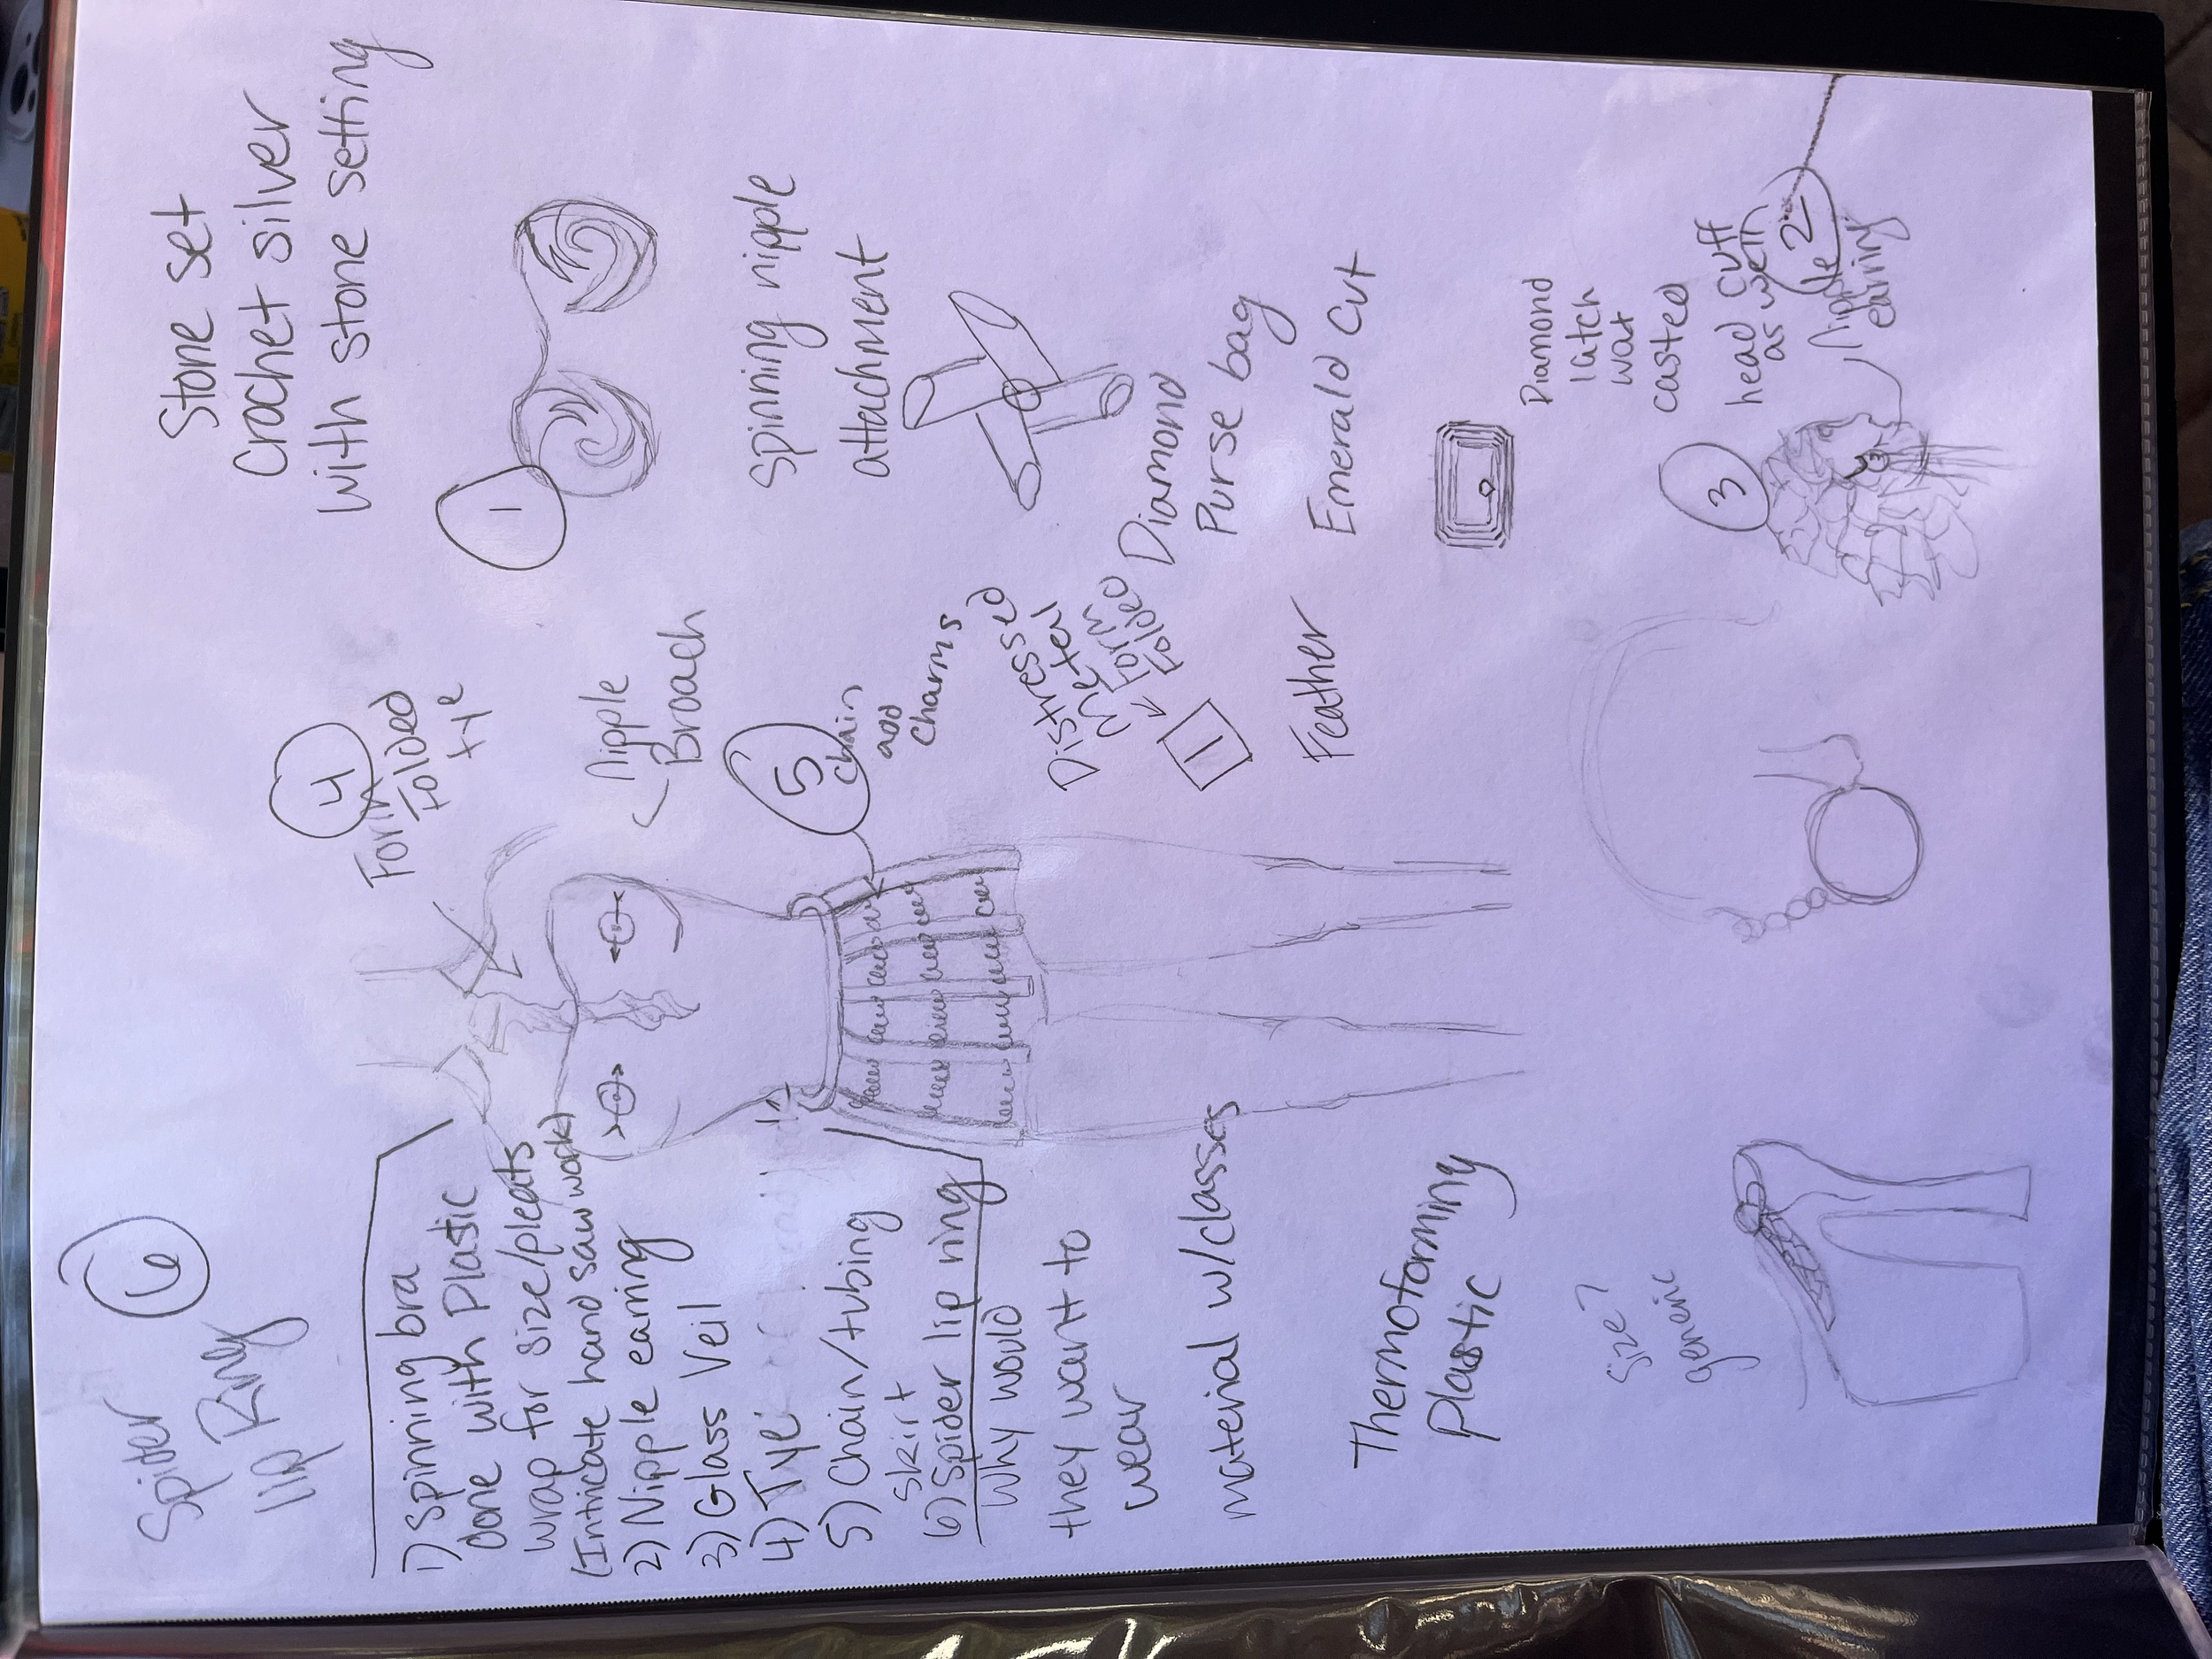 6
Spider
lip Ring
1) Spinning bra
done with Plastic
wrap for size/pleats
(Intricate hand saw work)
2) Nipple earring
3) Glass Veil
4) Tye
5) Chain/tubing
skirt
6) Spider lip ring
Why would
they want to
wear
material w/classes
Thermoforming
plastic
Size?
generic
4
Form
Folded
tye
Nipple
Broach
5
chain
add
charms
Distressed
metal
Form
Folded
1
Feather
Stone set
Crochet silver
with stone setting
1
Spinning nipple
attachment
Diamond
Purse bag
Emerald Cut
Diamond
latch
wax
casted
3
head cuff
as well
2
Nipple
earring